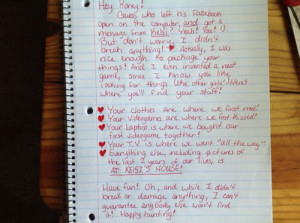 Hey Honey!
Guess who left his Facebook
open on the computer and got a
message from Keisi? Yeah! You! :)
But don't worry, I didn't
break anything! ♥ Actually, I was
nice enough to package your
things! And I even invented a new
game, since I know you like
looking for things (like other girls). Where
where you'll find your stuff!
♥ Your clothes are where we first met!
♥ Your videogames are where we first kissed!
♥ Your laptop is where we bought our
first videogame together!
♥ Your T.V. is where we went "all the way"
♥ Everything else, including pictures of
the last 2 years of our lives is
AT KEISI'S HOUSE!
Have fun! Oh, and while I didn't
break or damage anything, I can't
guarantee anybody else won't find
it! Happy hunting!